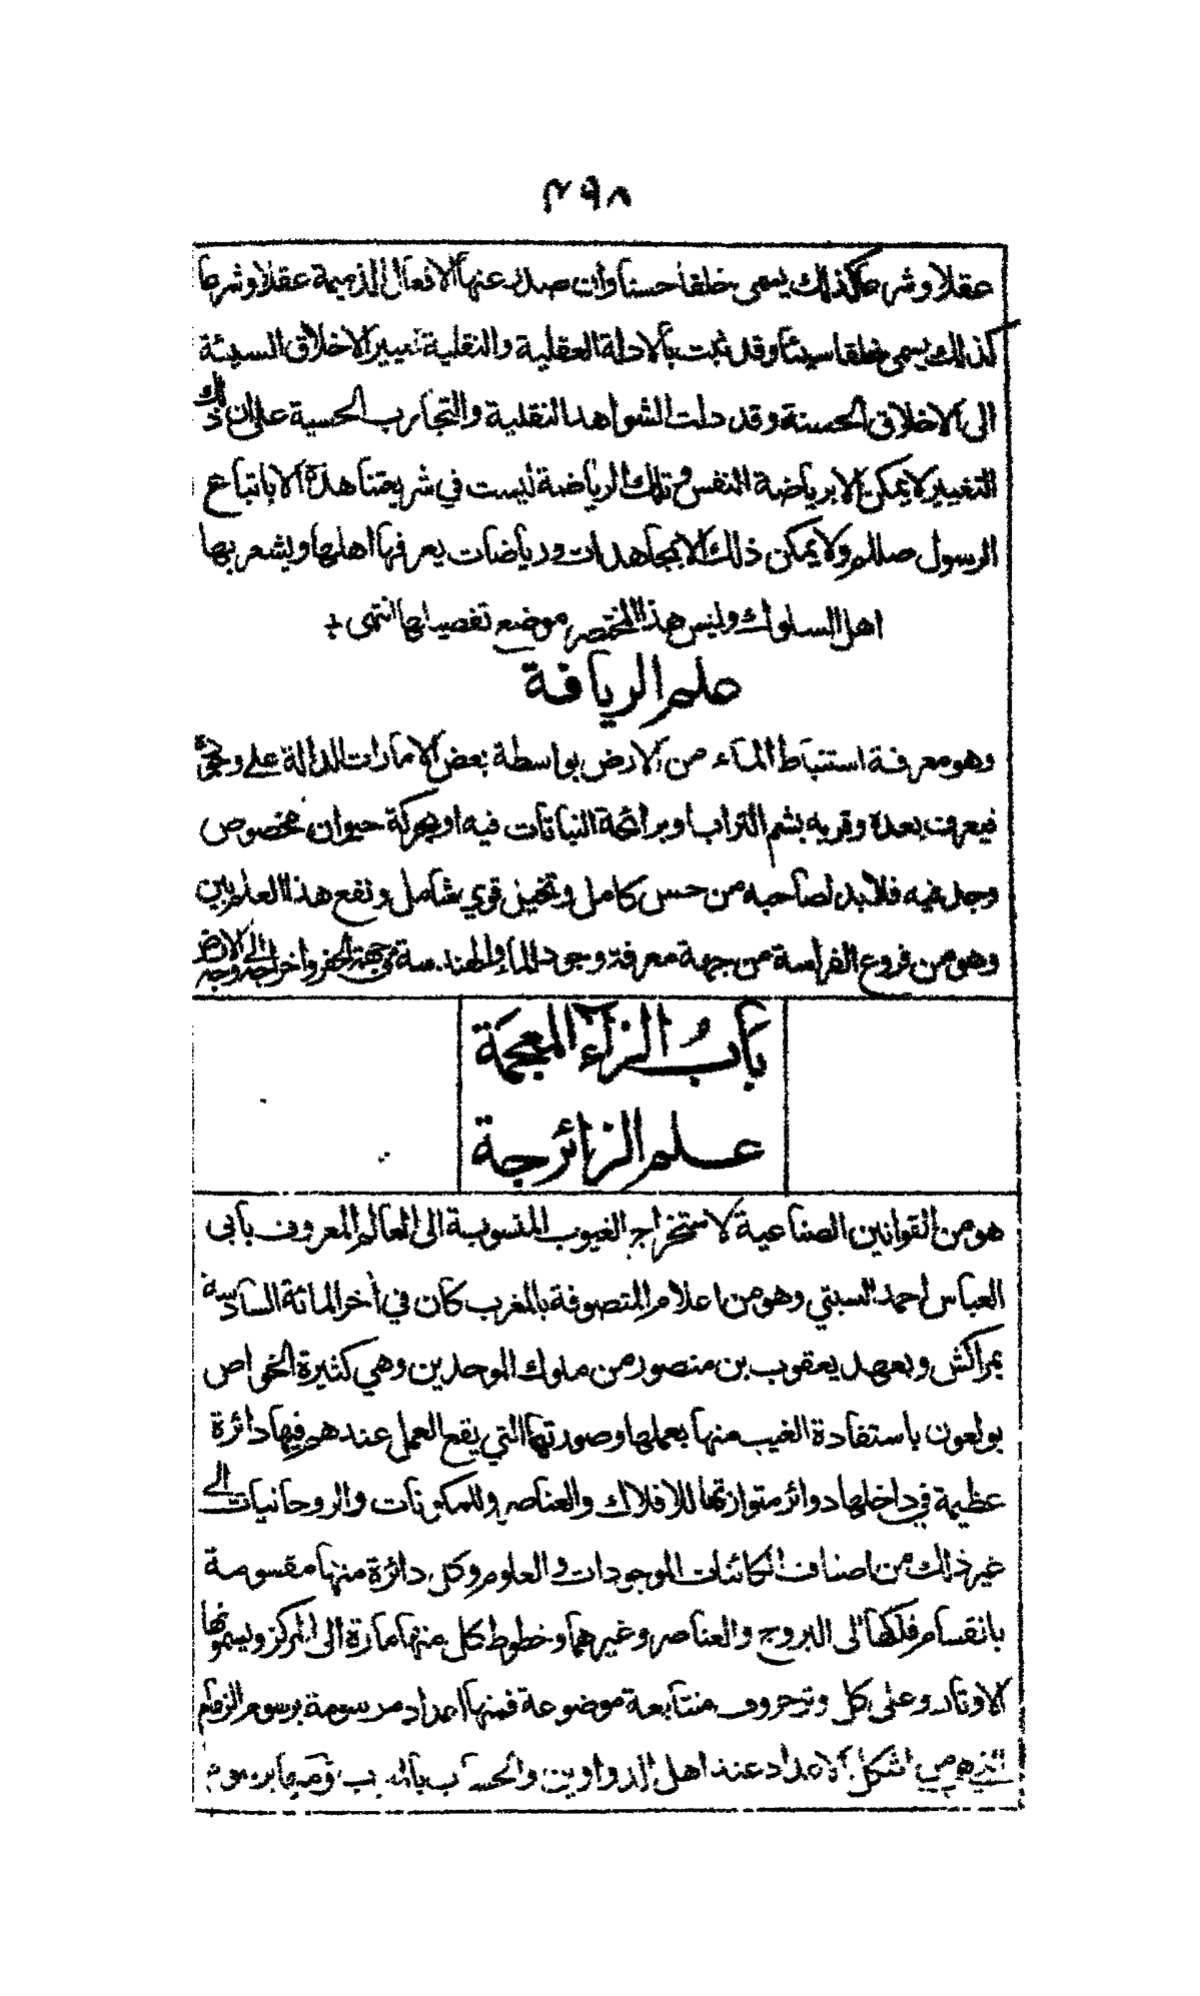 ۴۹۸
عقلا وشرعا كذلك يسمى خلقا حسنا وان صدر عنها الافعال الذميمة عقلا وشرعا
كذلك يسمى خلقا سيئا وقد ثبت بالادلة العقلية والنقلية تغيير الاخلاق السيئة
الى الاخلاق الحسنة وقد دلت الشواهد النقلية والتجارب الحسية على ان ذلك
التغيير لا يمكن الا برياضة النفس وتلك الرياضة ليست في شريعتنا هذه الا باتباع
الرسول صللم ولا يمكن ذلك الا بمجاهدات ورياضات يعرفها اهلها ويشعر بها
اهل السلوك وليس هذا المختصر موضع تفصيلها انتهى +
علم الريافة
وهو معرفة استنباط الماء من الارض بواسطة بعض الامارات الدالة على وجوده
فيعرف بعده وقربه بشم التراب او برائحة النباتات فيه او بحركة حيوان مخصوص
وجد فيه فلا بد لصاحبه من حس كامل وتخيل قوي شامل ونفع هذا العلم بين
وهو من فروع الفراسة من جهة معرفة وجود الماء والهندسة من جهة الحفر واخراجه الى وجه الارض
باب الزاء المعجمة
علم الزائرجة
هو من القوانين الصناعية لاستخراج الغيوب المنسوبة الى العالم المعروف بابي
العباس احمد السبتي وهو من اعلام المتصوفة بالمغرب كان في أخر المائة السادسة
بمراكش وبعهد يعقوب بن منصور من ملوك الموحدين وهي كثيرة الخواص
يولعون باستفادة الغيب منها بعملها وصورتها التي يقع العمل عندهم فيها دائرة
عظيمة في داخلها دوائر متوازنها للافلاك والعناصر وللمكونات والروحانيات الى
غير ذلك من اصناف الكائنات الموجودات والعلوم وكل دائرة منها مقسومة
بانقسام فلكها الى البروج والعناصر وغيرهما وخطوط كل منها مارة الى المركز ويسمونها
الاوتار وعلى كل وتر حروف متتابعة موضوعة فمنها اعداد مرسومة برسوم الزمام
التي هي من اشكال الاعداد عند اهل الدواوين والحساب بالمغرب ومنها برسوم